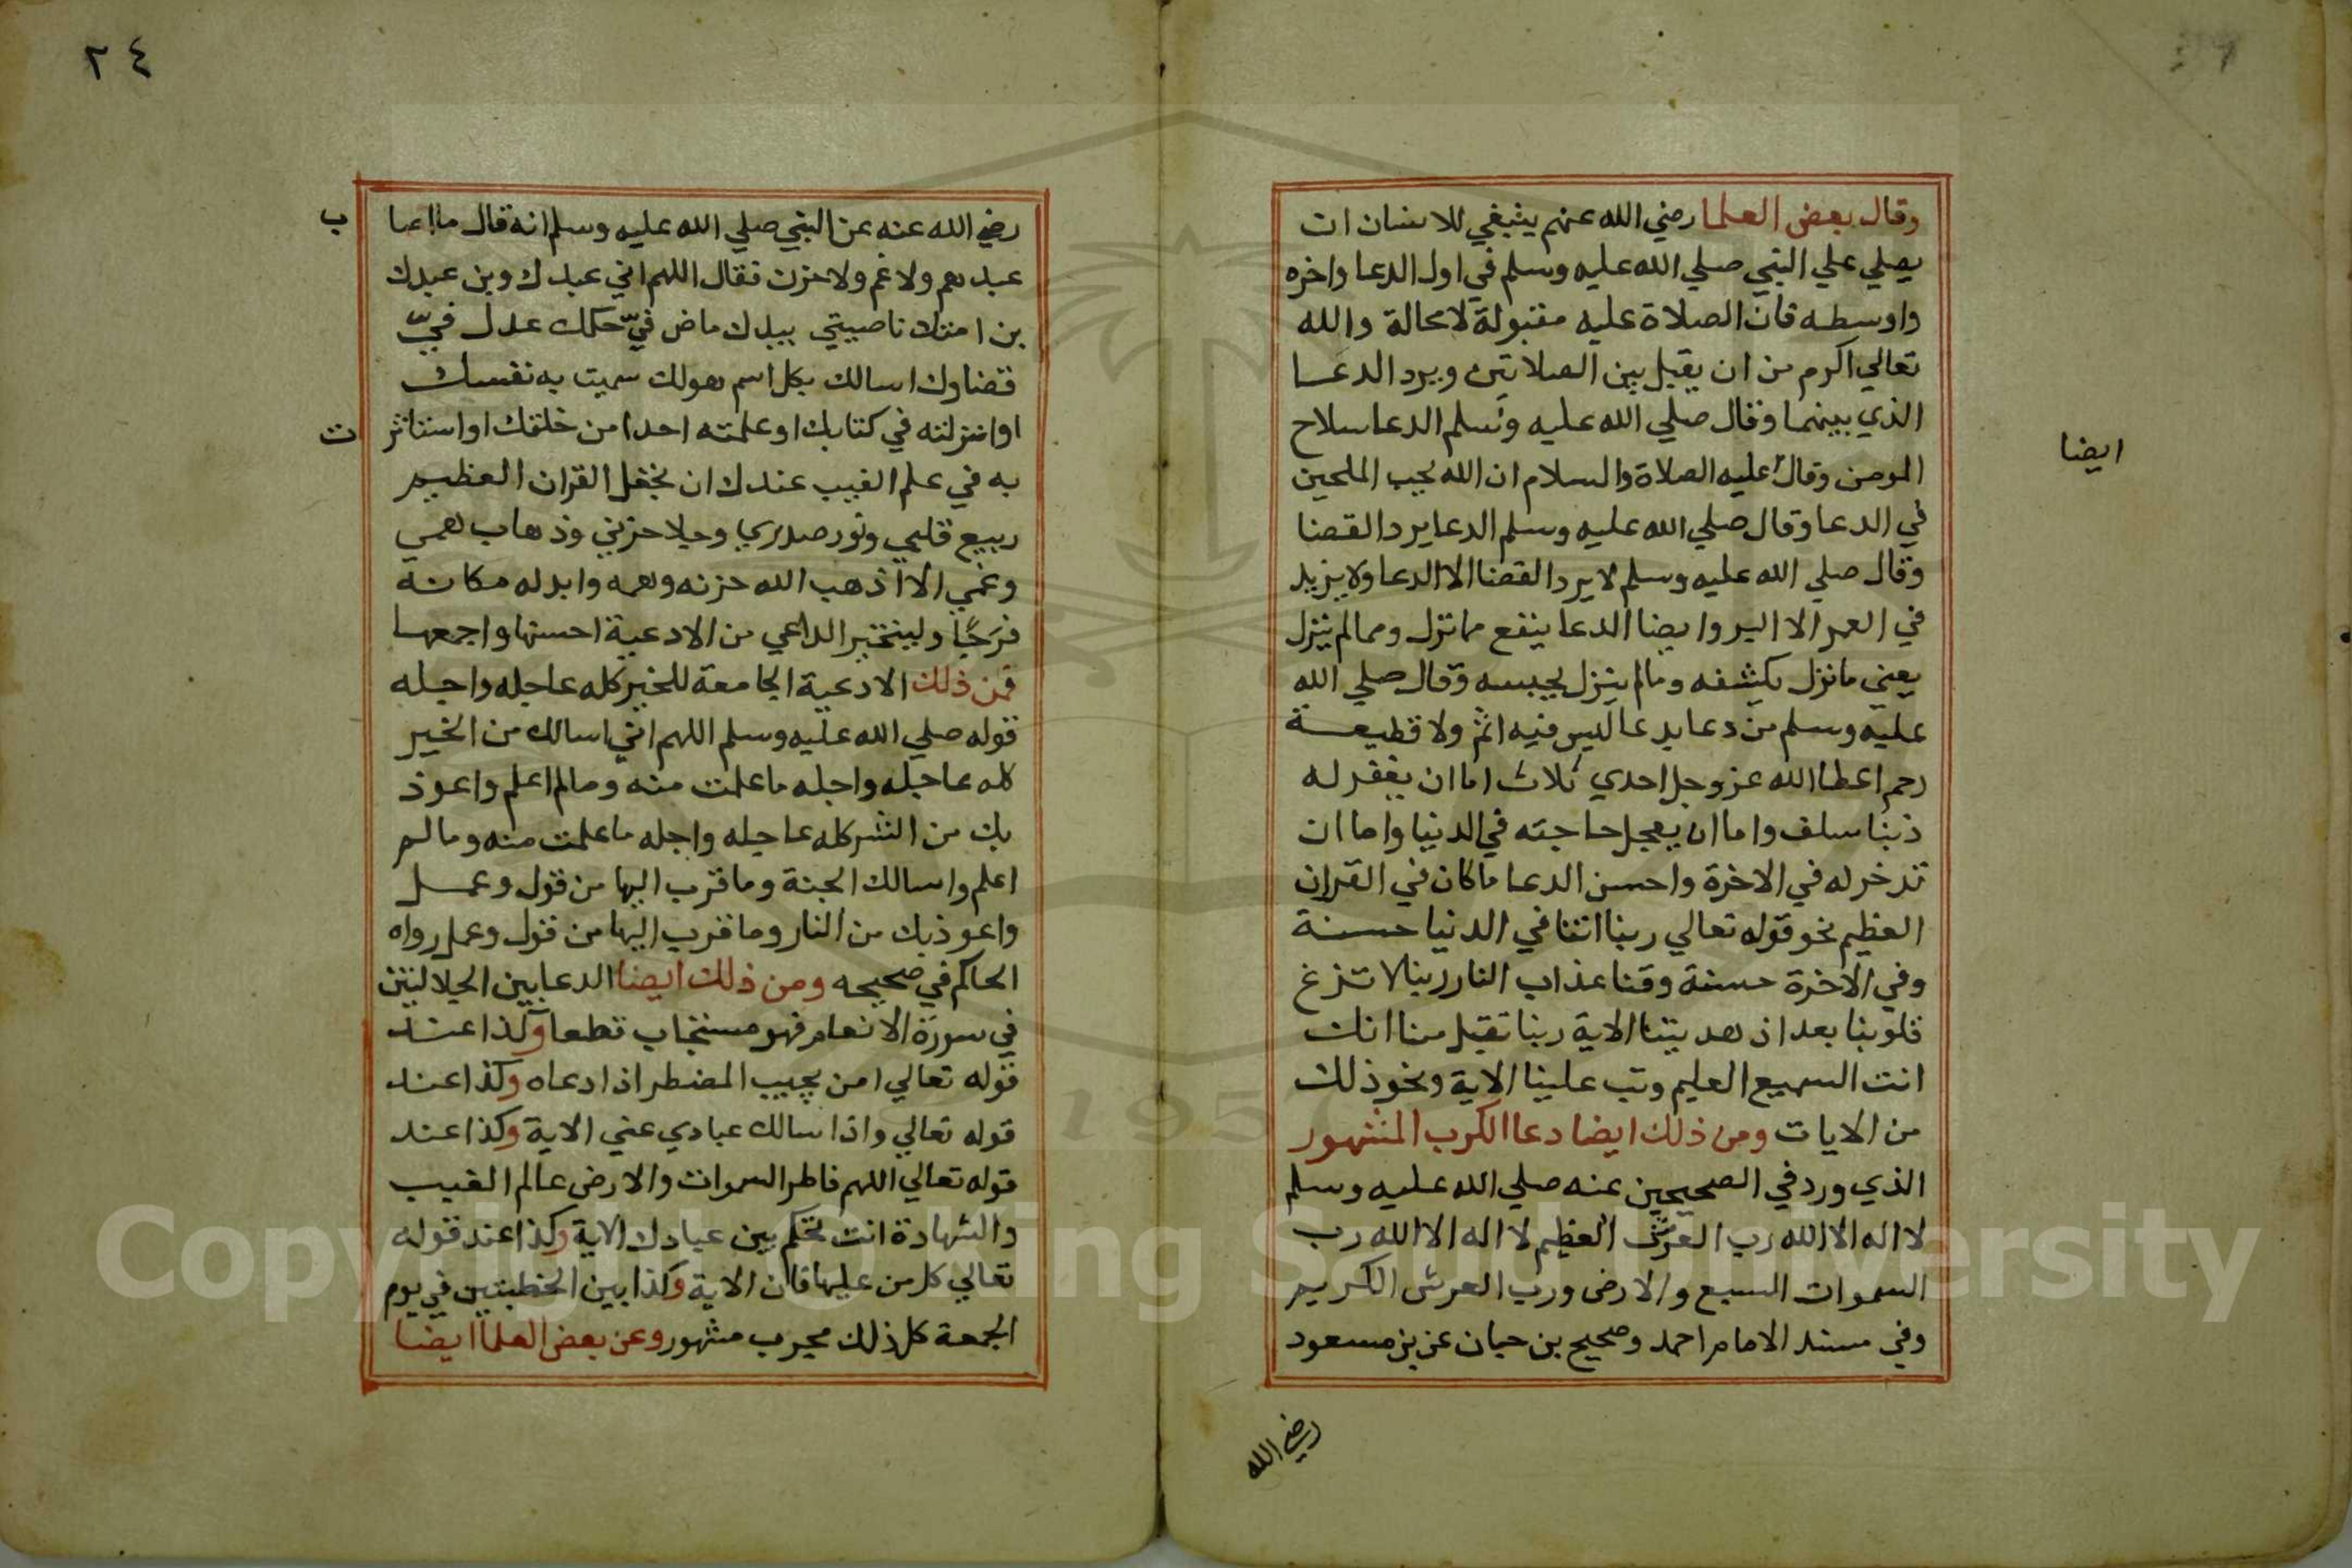 وقال بعض العلما رضي الله عنهم ينبغي للانسان ان
يصلي علي النبي صلي الله عليه وسلم في اول الدعا واخره
واوسطه فان الصلاة عليه مقبولة لا محالة والله
تعالي اكرم من ان يقبل بين الصلاتين ويرد الدعا
الذي بينهما وقال صلي الله عليه وسلم الدعا سلاح
المومن وقال عليه الصلاة والسلام ان الله يحب الملحين
ايضا
في الدعا وقال صلي الله عليه وسلم الدعا يرد القضا
وقال صلي الله عليه وسلم لا يرد القضا الا الدعا ولا يزيد
في العمر الا البر وايضا الدعا ينفع مما نزل ومما لم ينزل
يعني ما نزل يكشفه وما لم ينزل يحبسه وقال صلي الله
عليه وسلم من دعا بدعا ليس فيه اثم ولا قطيعة
رحم اعطا الله عز وجل احدي ثلاث اما ان يغفر له
ذنبا سلف واما ان يعجل حاجته في الدنيا واما ان
تدخر له في الاخرة واحسن الدعا ما كان في القران
العظيم نحو قوله تعالي ربنا اتنا في الدنيا حسنة
وفي الاخرة حسنة وقنا عذاب النار ربنا لا تزغ
قلوبنا بعد اذ هديتنا الاية ربنا تقبل منا انك
انت السميع العليم وتب علينا الاية ونحو ذلك
من الايات ومن ذلك ايضا دعا الكرب المشهور
الذي ورد في الصحيحين عنه صلي الله عليه وسلم
لا اله الا الله رب العرش العظيم لا اله الا الله رب
السموات السبع والارض ورب العرش الكريم
وفي مسند الامام احمد وصحيح بن حبان عن بن مسعود
رضي الله
٢٤
رضي الله عنه عن النبي صلي الله عليه وسلم انه قال ما اصا
ب
عبد هم ولا غم ولا حزن فقال اللهم اني عبدك وبن عبدك
بن امتك ناصيتي بيدك ماض فيّ حكمك عدل فيّ
قضاوك اسالك بكل اسم هو لك سميت به نفسك
او انزلته في كتابك او علمته احدا من خلقك او استاثر
ت
به في علم الغيب عندك ان تجعل القران العظيم
ربيع قلبي ونور صدري وجلا حزني وذهاب همي
وغمي الا اذهب الله حزنه وهمه وابدله مكانه
فرجًا وليتخير الداعي من الادعية احسنها واجمعها
فمن ذلك الادعية الجامعة للخير كله عاجله واجله
قوله صلي الله عليه وسلم اللهم اني اسالك من الخير
كله عاجله واجله ما علمت منه وما لم اعلم واعوذ
بك من الشر كله عاجله واجله ما علمت منه وما لم
اعلم واسالك الجنة وما قرب اليها من قول وعمل
واعوذ بك من النار وما قرب اليها من قول وعمل رواه
الحاكم في صحيحه ومن ذلك ايضا الدعا بين الجلالتين
في سورة الانعام فهو مستجاب قطعا وكذا عند
قوله تعالي امن يجيب المضطر اذا دعاه وكذا عند
قوله تعالي واذا سالك عبادي عني الاية وكذا عند
قوله تعالي اللهم فاطر السموات والارض عالم الغيب
والشهادة انت تحكم بين عبادك الاية وكذا عند قوله
تعالي كل من عليها فان الاية وكذا بين الخطبتين في يوم
الجمعة كل ذلك مجرب مشهور وعن بعض العلما ايضا
1957
Copyright © King Saud University